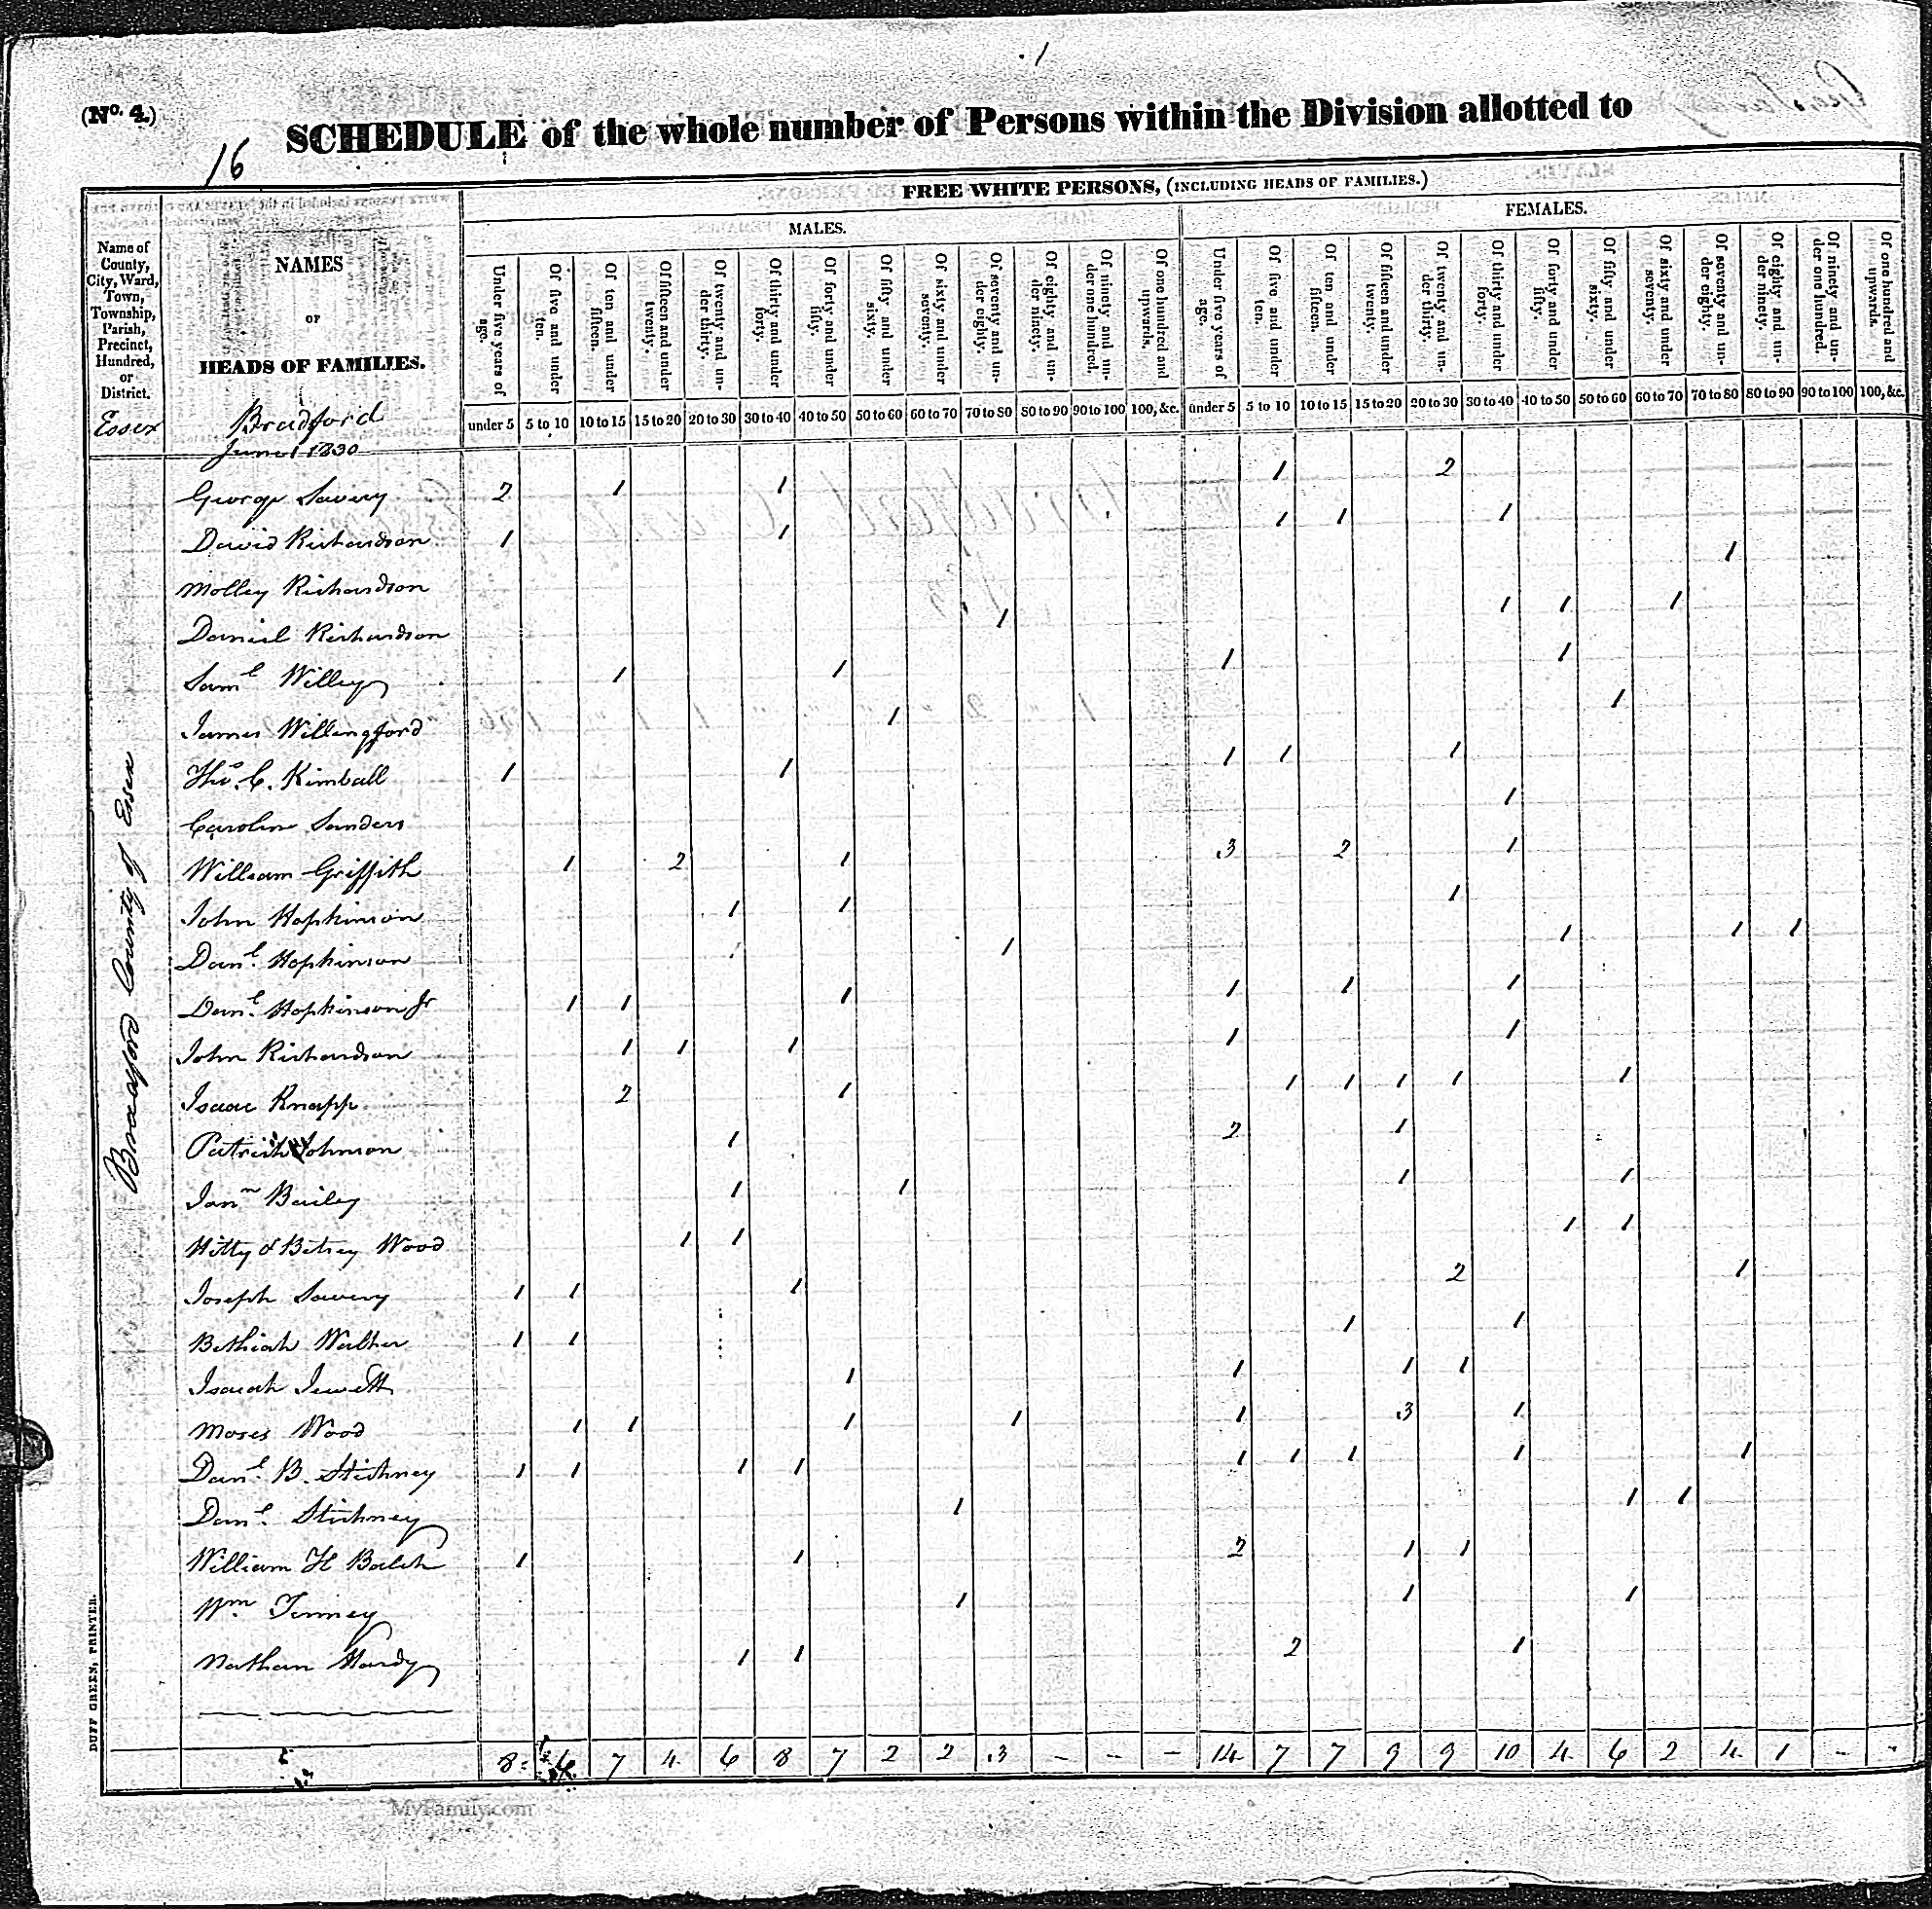 1
(No. 4.)
SCHEDULE of the whole number of Persons within the Division allotted to
16
FREE WHITE PERSONS, (INCLUDING HEADS OF FAMILIES.)
MALES. FEMALES.
Name of County, City, Ward, Town, Township, Parish, Precinct, Hundred, or District.
NAMES
OF
HEADS OF FAMILIES.
Under five years of age. Of five and under ten. Of ten and under fifteen. Of fifteen and under twenty. Of twenty and under thirty. Of thirty and under forty. Of forty and under fifty. Of fifty and under sixty. Of sixty and under seventy. Of seventy and under eighty. Of eighty and under ninety. Of ninety and under one hundred. Of one hundred and upwards. Under five years of age. Of five and under ten. Of ten and under fifteen. Of fifteen and under twenty. Of twenty and under thirty. Of thirty and under forty. Of forty and under fifty. Of fifty and under sixty. Of sixty and under seventy. Of seventy and under eighty. Of eighty and under ninety. Of ninety and under one hundred. Of one hundred and upwards.
under 5 5 to 10 10 to 15 15 to 20 20 to 30 30 to 40 40 to 50 50 to 60 60 to 70 70 to 80 80 to 90 90 to 100 100, &c. under 5 5 to 10 10 to 15 15 to 20 20 to 30 30 to 40 40 to 50 50 to 60 60 to 70 70 to 80 80 to 90 90 to 100 100, &c.
Essex Bradford
June 1 1830
George Savery 2 1 1 1 2
David Richardson 1 1 1 1 1
Molley Richardson 1
Daniel Richardson 1 1 1 1
Saml Willey 1 1 1 1
James Willingford 1 1
Thos. C. Kimball 1 1 1 1 1
Carolin Sanders 1
William Griffith 1 2 1 3 2 1
John Hopkinson 1 1 1
Danl. Hopkinson 1 1 1 1
Danl. Hopkinson Jr 1 1 1 1 1 1
John Richardson 1 1 1 1 1
Isaac Knapp 2 1 1 1 1 1 1
Patrick Johnson 1 2 1
Bailey 1 1 1 1
Hitty & Betsey Wood 1 1 1 1
Joseph Savery 1 1 1 2 1
Bethiah Walker 1 1 1 1
Isaiah Jewett 1 1 1 1
Moses Wood 1 1 1 1 1 3 1
Danl. B. Stickney 1 1 1 1 1 1 1 1 1
Danl. Stickney 1 1 1
William H Balch 1 1 2 1 1
Wm. Tenney 1 1 1
Nathan Hardy 1 1 2 1
8 6 7 4 6 8 7 2 2 3 - - - 14 7 7 9 9 10 4 6 2 4 1 - -
Bradford County of Essex
DUFF GREEN, PRINTER.
MyFamily.com